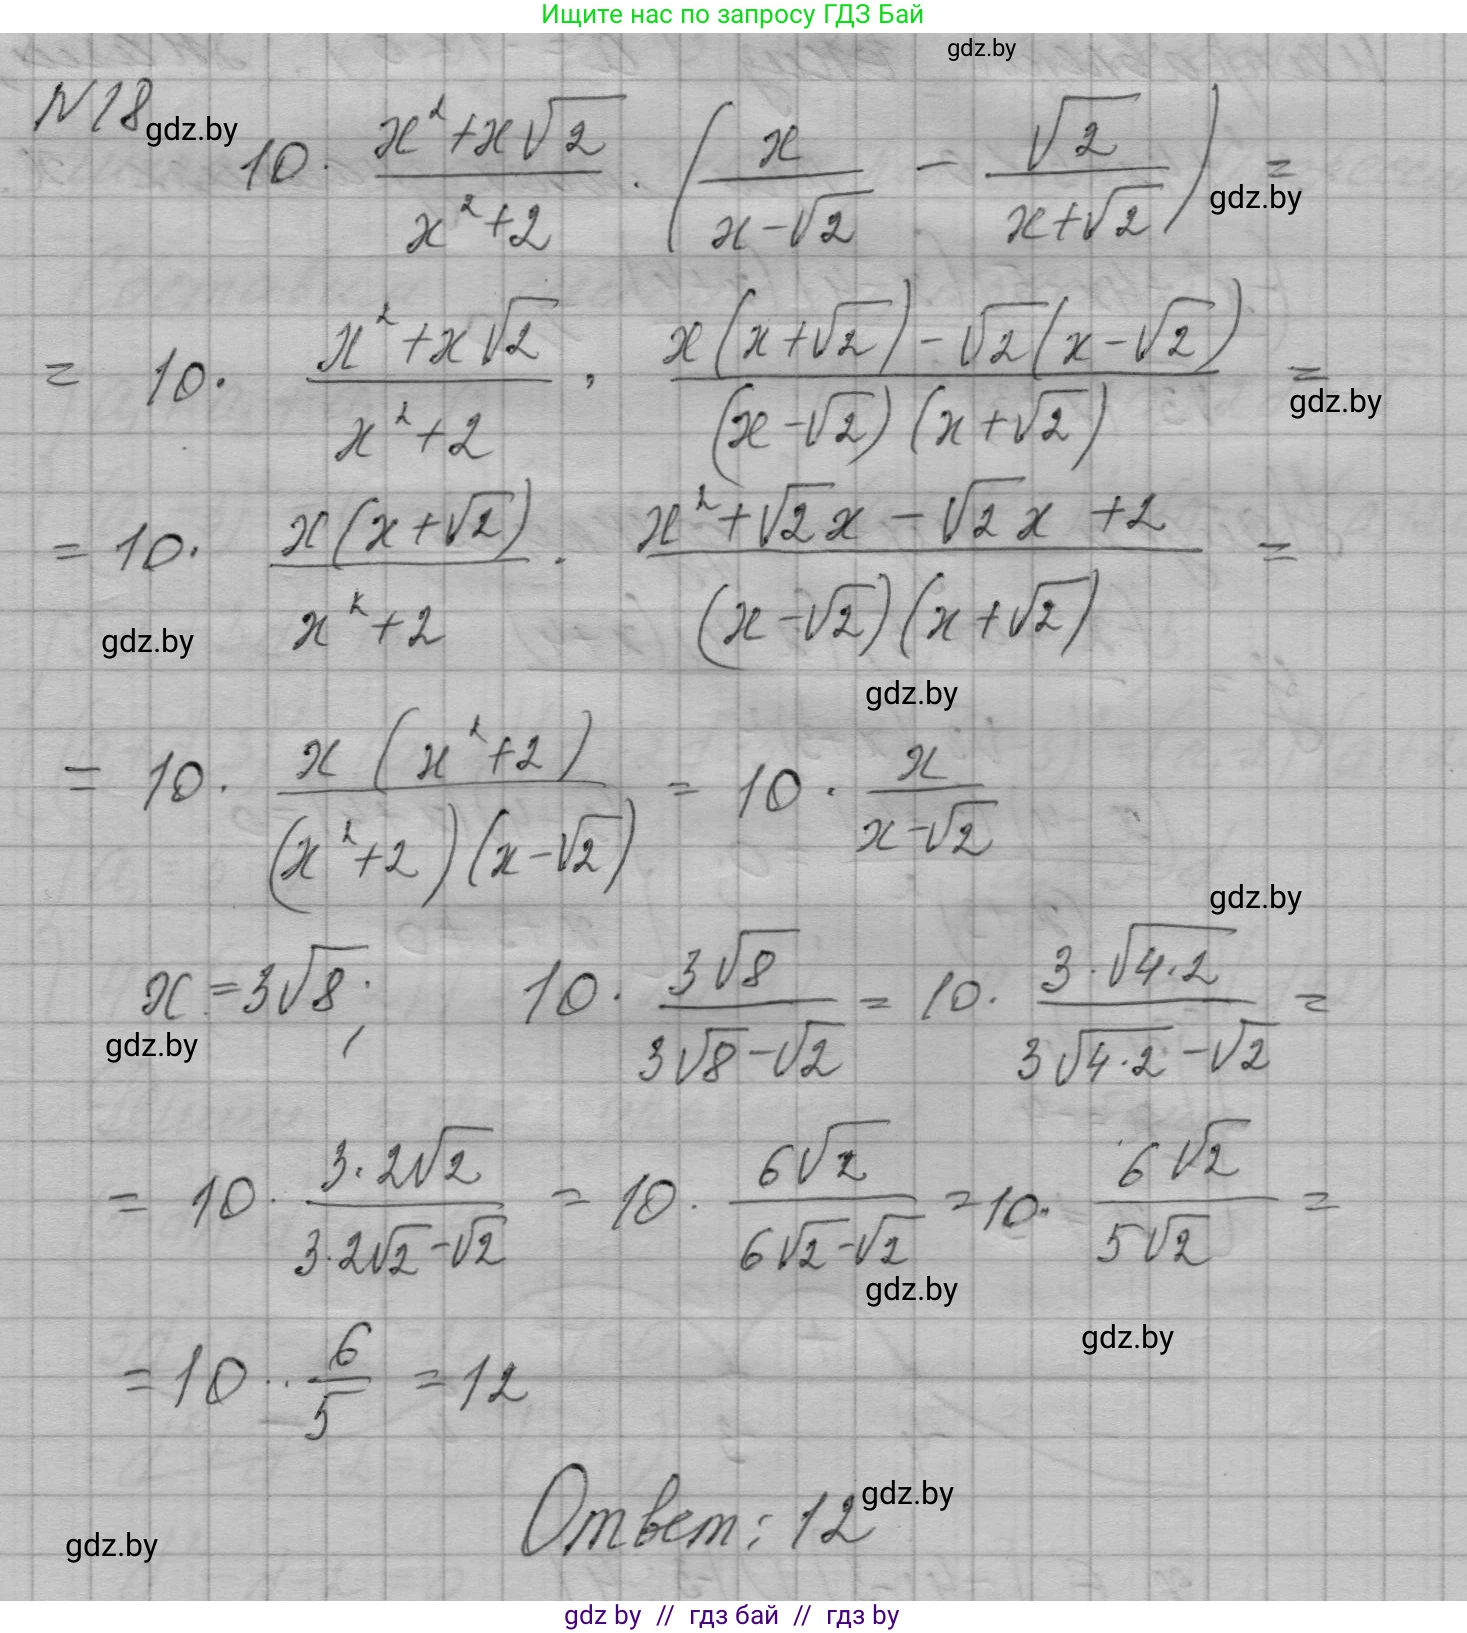 Ищите нас по запросу ГДЗ Бай
gdz.by
N18 gdz.by
10 · (x² + x√2)/(x² + 2) · (x/(x − √2) − √2/(x + √2)) =
gdz.by
= 10 · (x² + x√2)/(x² + 2) · (x(x + √2) − √2(x − √2))/((x − √2)(x + √2)) =
gdz.by
= 10 · x(x + √2)/(x² + 2) · (x² + √2x − √2x + 2)/((x − √2)(x + √2)) =
gdz.by
gdz.by
= 10 · x(x² + 2)/((x² + 2)(x − √2)) = 10 · x/(x − √2)
gdz.by
x = 3√8; 10 · 3√8/(3√8 − √2) = 10 · 3·√4·2/(3√4·2 − √2) =
gdz.by
= 10 · 3·2√2/(3·2√2 − √2) = 10 · 6√2/(6√2 − √2) = 10 · 6√2/5√2 =
gdz.by
gdz.by
= 10 · 6/5 = 12
Ответ: 12 gdz.by
gdz.by
gdz by // гдз бай // гдз by